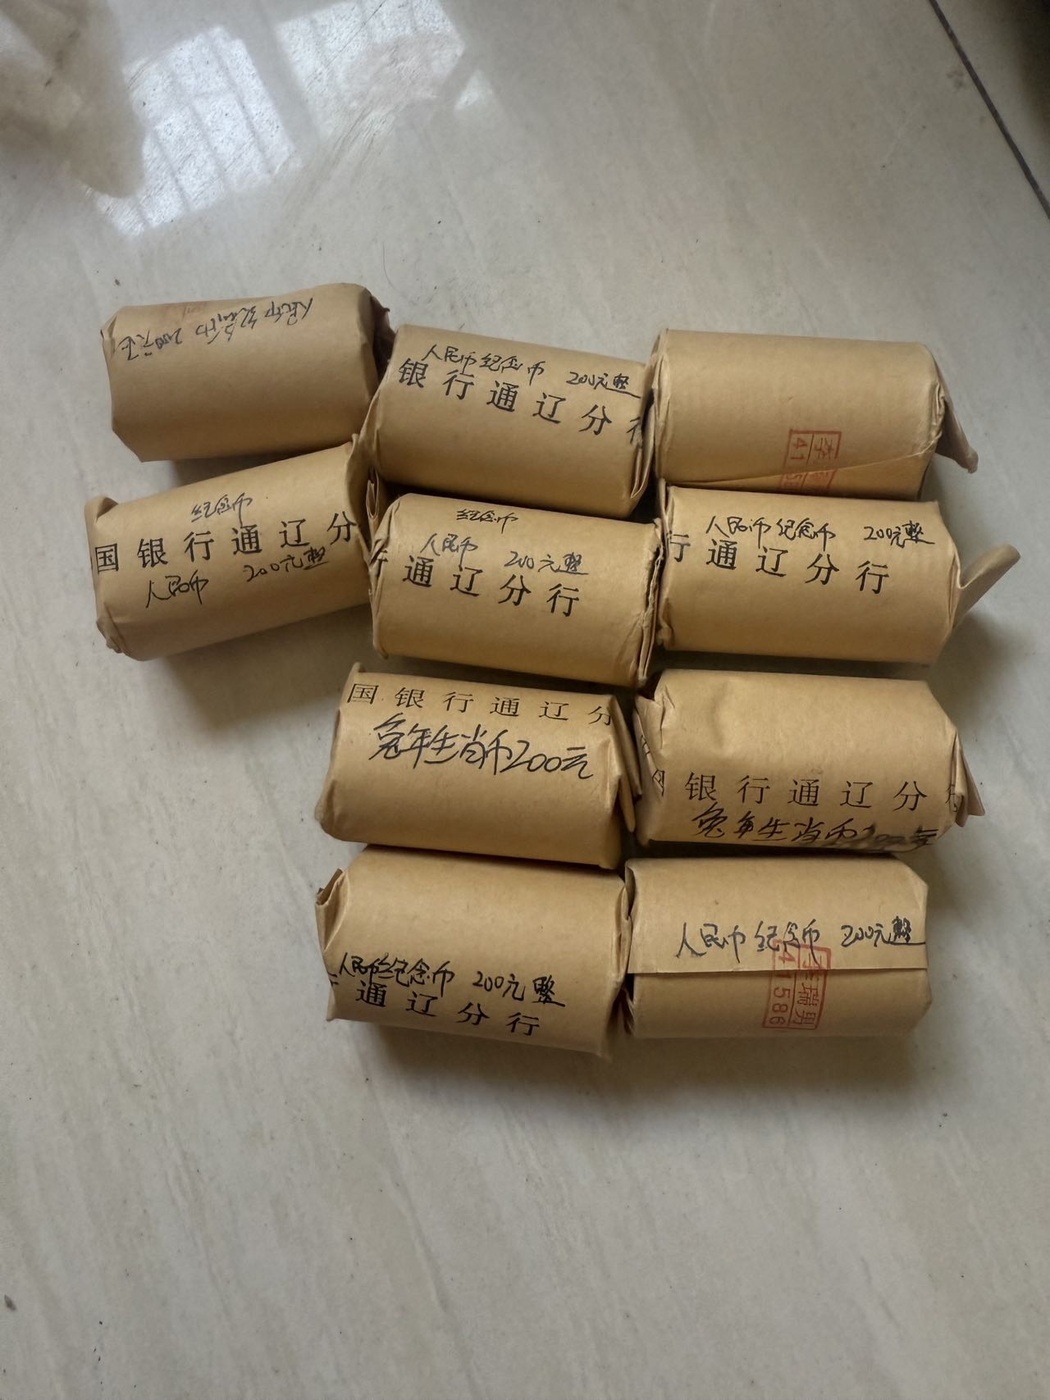 人民币 纪念币 200元正
人民币 纪念币 200元整
银行通辽分行
李
41
纪念币
国银行通辽分
人民币 200元整
纪念币
人民币 200元整
行通辽分行
人民币 纪念币 200元整
行通辽分行
国银行通辽分
兔年生肖币200元
银行通辽分
兔年生肖币200元
人民币纪念币 200元整
通辽分行
人民币 纪念币 200元整
李瑞男
41586